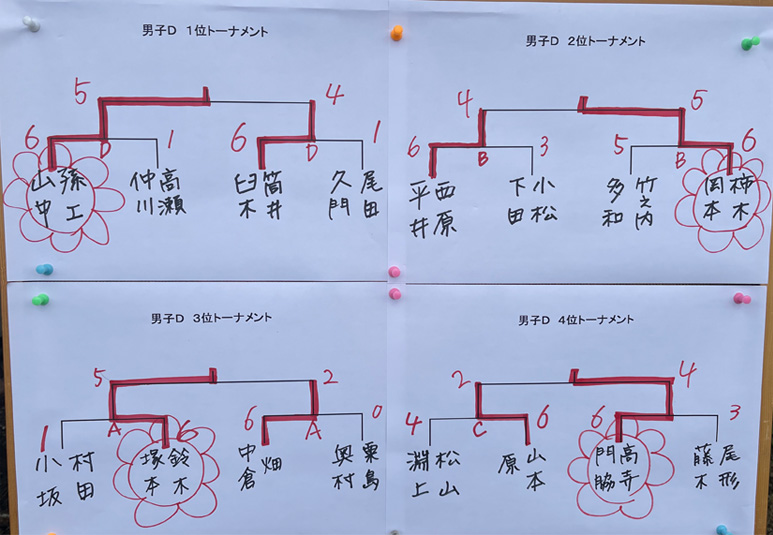 男子D 1位トーナメント
5
4
6
D
1
6
D
1
孫工
山中
高瀬
仲川
筒井
臼木
尾田
久門
男子D 2位トーナメント
4
5
6
B
3
5
B
6
西原
平井
小松
下田
竹之内
多和
柿木
岡本
男子D 3位トーナメント
5
2
1
A
6
6
A
0
村田
小坂
鈴木
塚本
畑
中倉
粟島
奥村
男子D 4位トーナメント
2
4
4
C
6
6
3
松山
淵上
山本
原
高寺
門脇
尾形
藤木